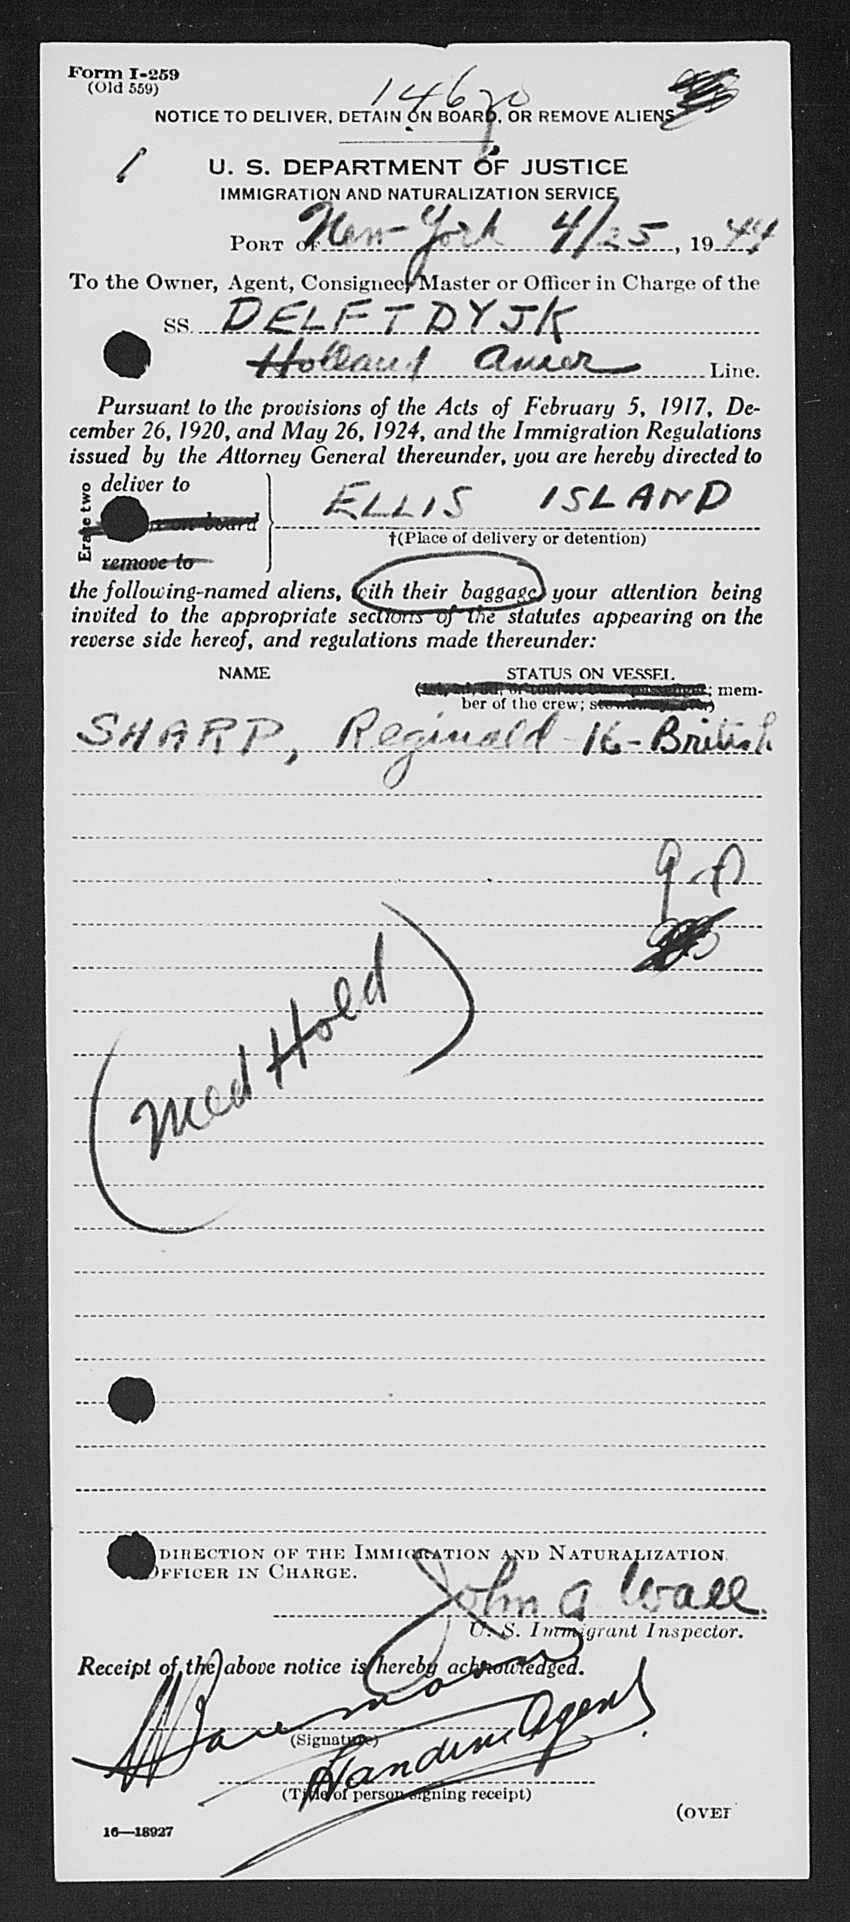 Form I-259
(Old 559)
14670
NOTICE TO DELIVER, DETAIN ON BOARD, OR REMOVE ALIENS
U. S. DEPARTMENT OF JUSTICE
IMMIGRATION AND NATURALIZATION SERVICE
PORT OF New York 4/25, 1944
To the Owner, Agent, Consignee, Master or Officer in Charge of the
SS. DELFTDYJK
Holland Amer Line.
Pursuant to the provisions of the Acts of February 5, 1917, De-
cember 26, 1920, and May 26, 1924, and the Immigration Regulations
issued by the Attorney General thereunder, you are hereby directed to
Erase two
deliver to
on board
remove to
ELLIS ISLAND
†(Place of delivery or detention)
the following-named aliens, with their baggage, your attention being
invited to the appropriate sections of the statutes appearing on the
reverse side hereof, and regulations made thereunder:
NAME STATUS ON VESSEL
; mem-
ber of the crew;
SHARP, Reginald - 16 - British
(Med Hold)
DIRECTION OF THE IMMIGRATION AND NATURALIZATION
OFFICER IN CHARGE.
John A Wall
U. S. Immigrant Inspector.
Receipt of the above notice is hereby acknowledged.
(Signature)
Agent
(Title of person signing receipt)
(OVER
16—18927